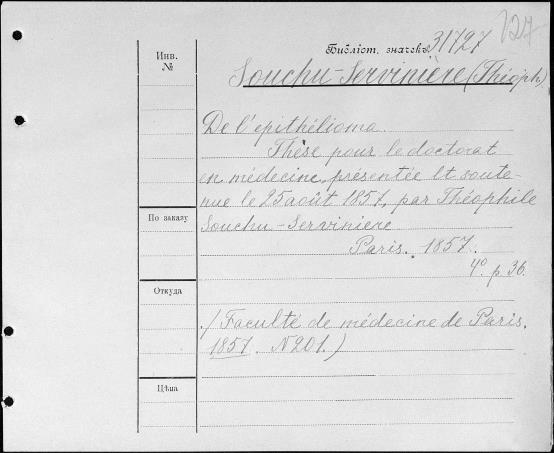 127
Библіот. значекъ 31727
Инв.
№
Souchu-Servinière (Théoph.)
De l'epithélioma.
Thèse pour le doctorat
en médecine, présentée et soute-
nue le 25 août 1857, par Théophile
Souchu-Serviniere
По заказу
Paris. 1857.
4º. p 36.
Откуда
(Faculté de médecine de Paris.
1857. N 201.)
Цѣна